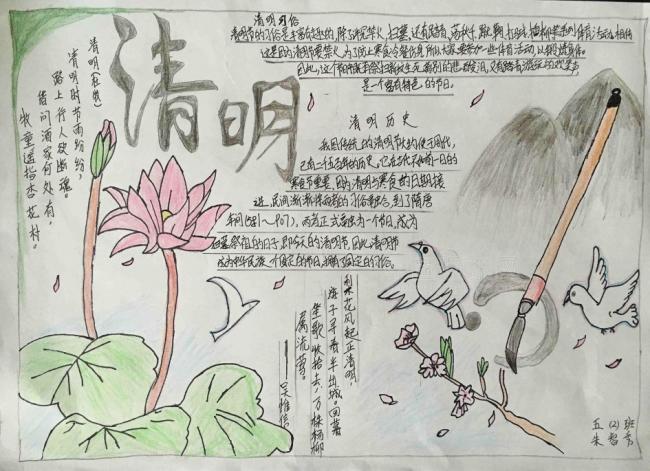 清明
清明习俗
清明节的习俗是丰富有趣的,除了讲究禁火、扫墓,还有踏青、荡秋千、蹴鞠、打马球、插柳等系列体育活动。相传
这是因为清明节要禁火,为了防止寒食冷餐伤身,所以大家要参加一些体育活动,以锻炼身体。
因此,这个节日既有祭扫新坟生死离别的悲酸泪,又有踏青游玩的欢笑声,
是一个富有特色的节日。
清明 历史
我国传统上的清明节大约始于周代,
已有二千五百年的历史。
寒食节重要,因为清明与寒食的日期接
近,民间渐渐将两者的习俗融合,到了隋唐
年间(581~907),两者正式合为一个节日,成为
扫墓祭祖的日子,即今天的清明节。因此清明节
清明(杜牧)
清明时节雨纷纷,
路上行人欲断魂。
借问酒家何处有,
牧童遥指杏花村。
梨花风起正清明,
游子寻春半出城。日暮
笙歌收拾去,万株杨柳
属流莺。
——吴惟信
五(2)班